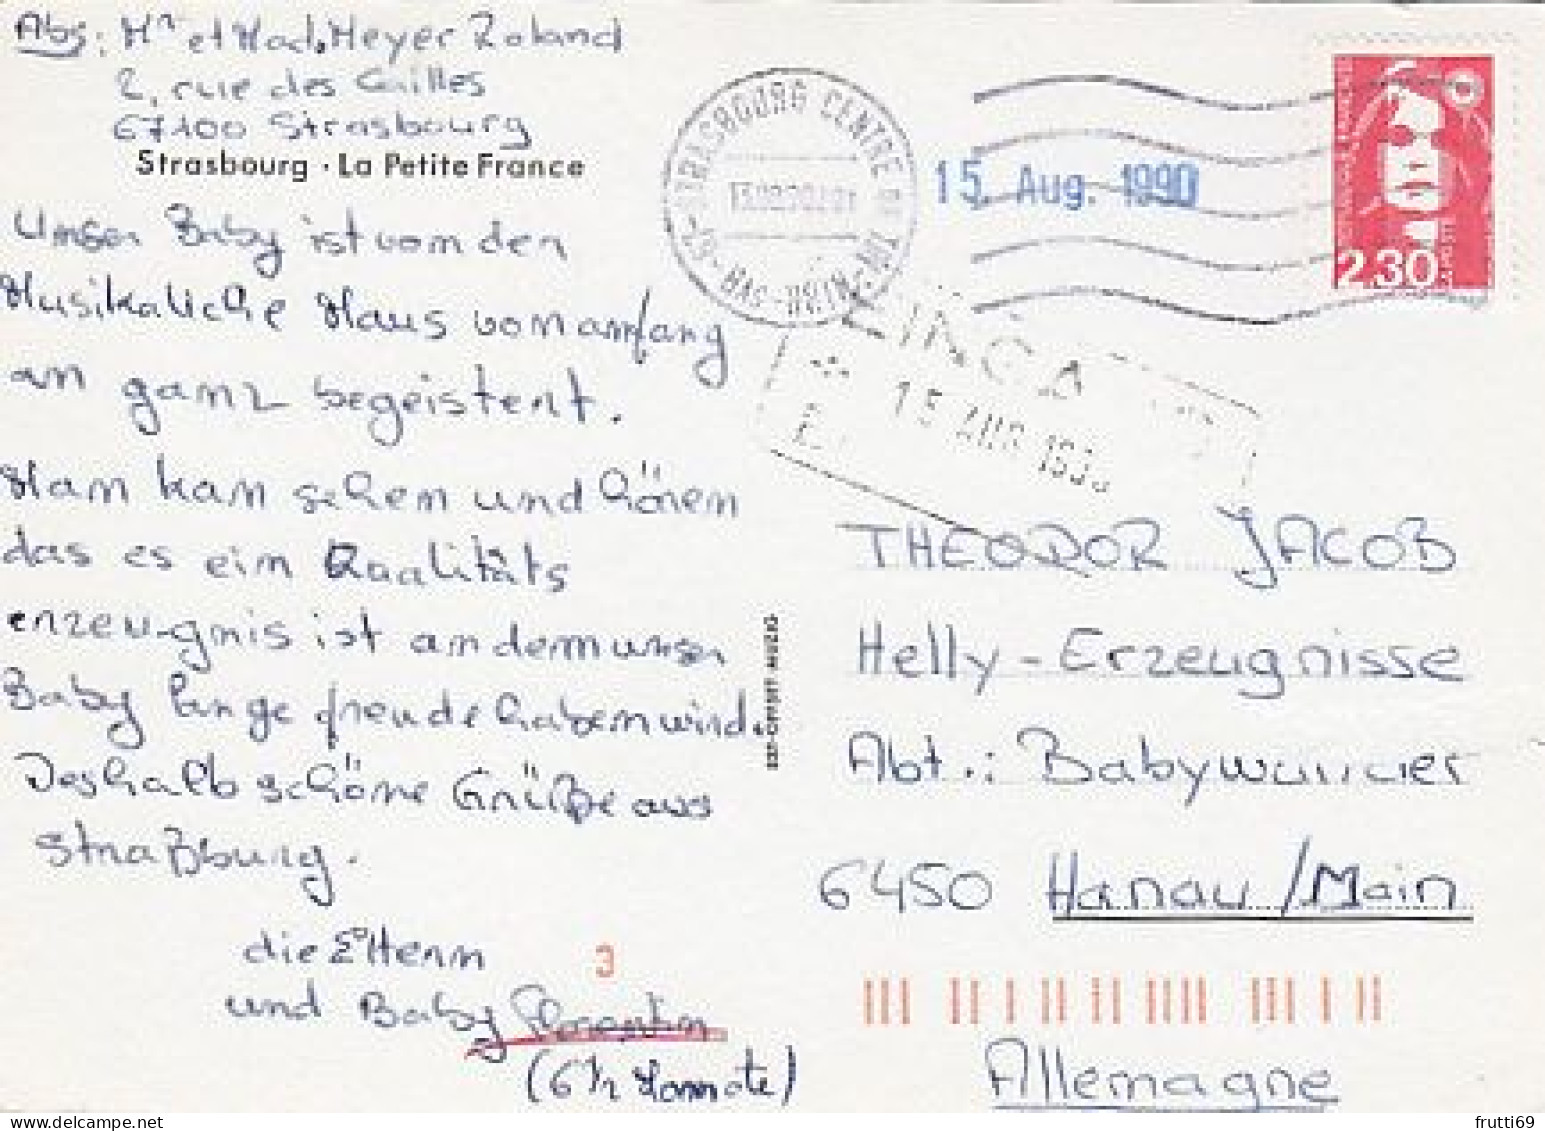 Abs: Mr et Mad. Meyer Roland
2, rue des Cailles
67100 Strasbourg
Strasbourg · La Petite France
Unser Baby ist von den
Musikaliche Haus vonamfang
an ganz begeistert.
Man kan sehen und hören
das es ein Qualitäts
erzeugnis ist an dem unser
Baby lange freude haben wird.
Deshalb schöne Grüße aus
Straßburg.
die Eltern
und Baby Florentin
(6½ Monate)
3
STRASBOURG CENTRE DE TRI
BAS-RHIN
15. Aug. 1990
2,30
LA POSTE
EINGA
15 AUG
THEODOR JACOB
Helly-Erzeugnisse
Abt.: Babywunder
6450 Hanau/Main
Allemagne
frutti69